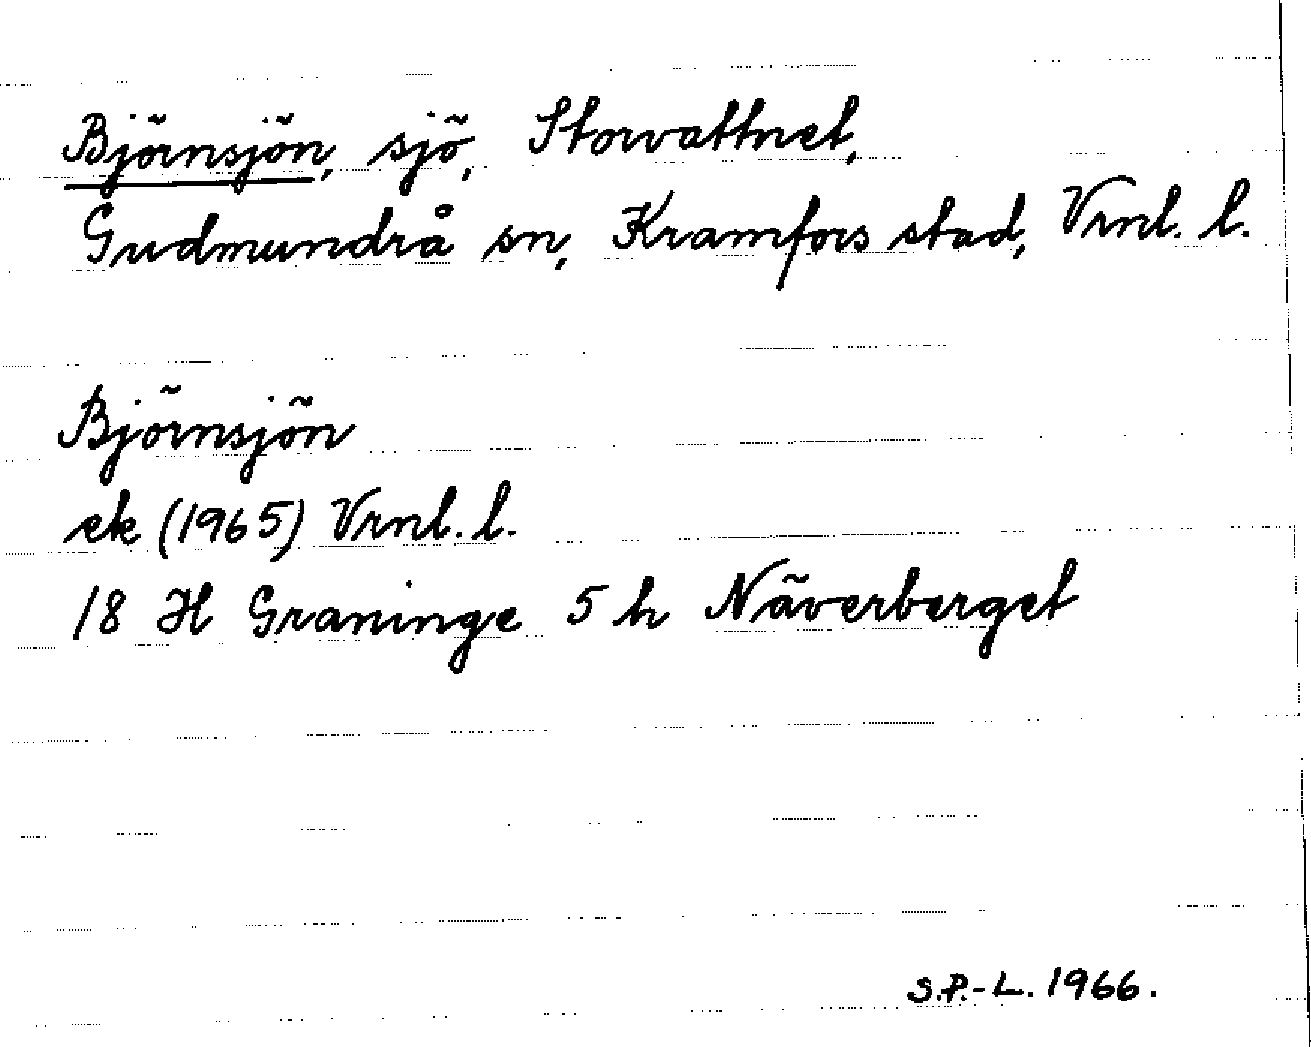 Björnsjön, sjö, Storvattnet,
Gudmundrå sn, Kramfors stad, Vrnl. l.
Björnsjön
ek (1965) Vrnl. l.
18 H Graninge 5 h Näverberget
S.P.-L. 1966.